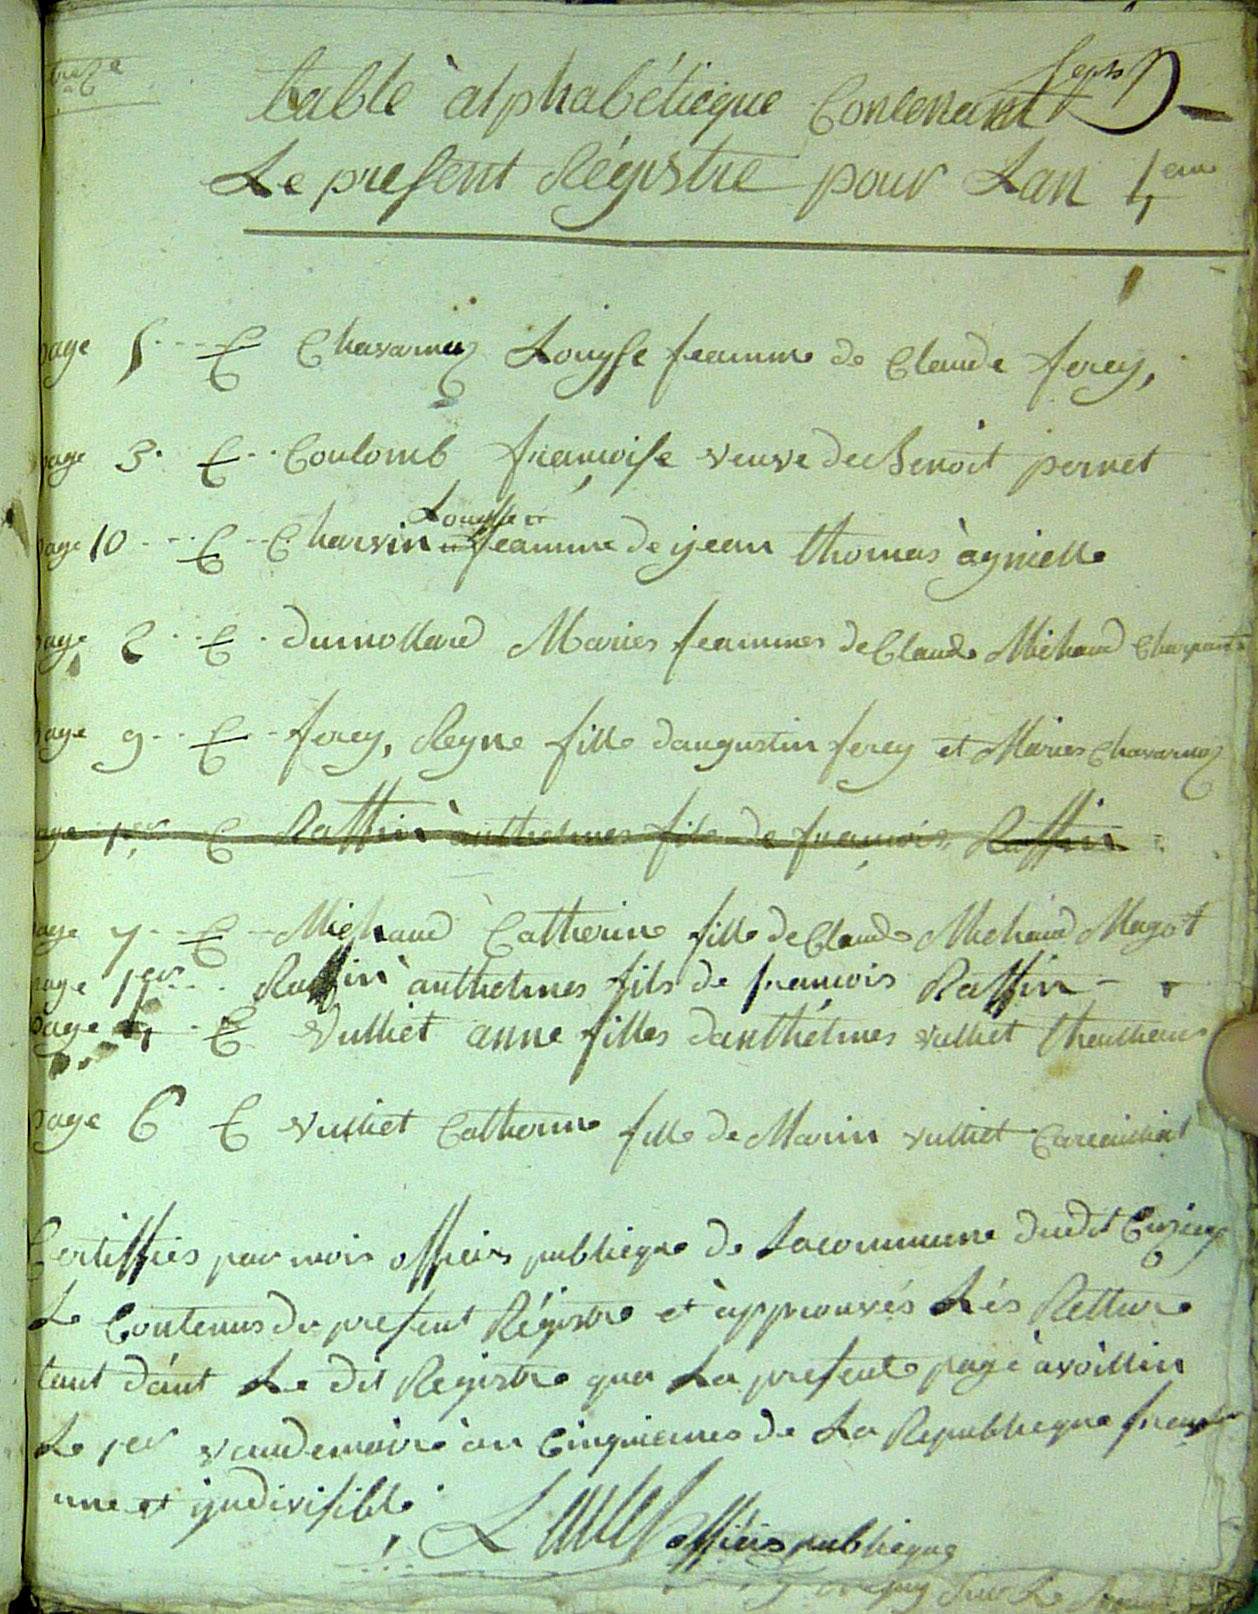 table àlphabétieque Contenant
Le present Régistre pour Lan 4eme
page 5 C Chavarnaz Louysse feamme de Claude ferey,
page 3 C Coulomb françoise veuve de Benoit pernet
Louysse
page 10 C Charvin feamme de ijean thomas àgnielle
page 2 C dumollard Maries feammes de Claude Michaud
page 9 C ferey, Reyne fille daugustin ferey et Maries Chavarnaz
page 1er C Raffin anthelmes fils de francois Raffin
page 7 C Michaud Catherine fille de Claude Michaud Magot
page 1er Raffin anthelmes fils de francois Raffin
page 4 C Vulliet anne filles danthélmes vulliet
page 6 C Vulliet Catherine fille de Marin vulliet
Certiffiés par mois offiéis publieque de Lacommune dudit
Le Contenus du present Régistre et àpprouvés Lés Retture
tant dánt Le dit Registre que La presente page àvoillin
Le 1er vandemaire àn Cinquiemes de La Republieque
une et yndivisible
offiéis publieque